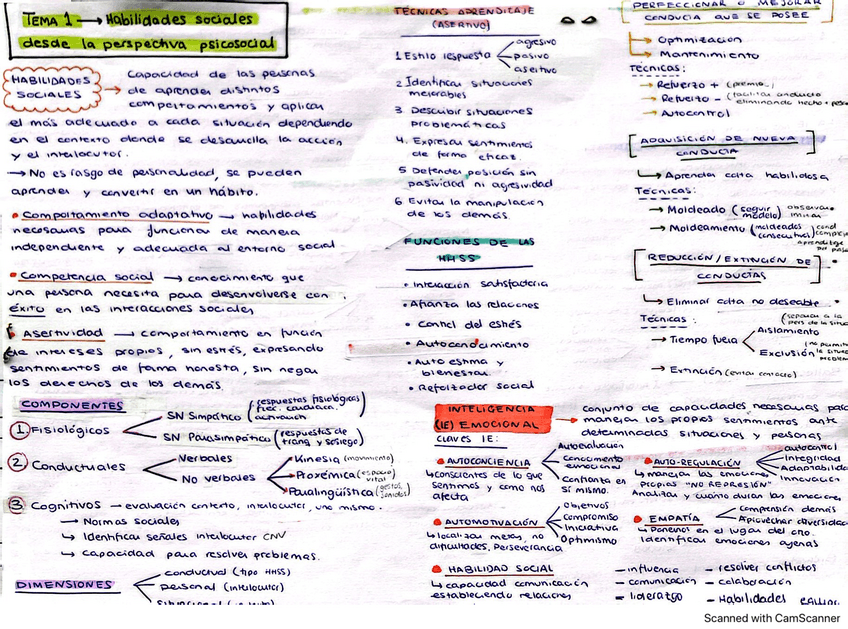 TEMA 1 → Habilidades sociales
desde la perspectiva psicosocial
HABILIDADES SOCIALES → Capacidad de las personas
de aprender distintos
comportamientos y aplicar
el más adecuado a cada situación dependiendo
en el contexto donde se desarrolla la acción
y el interlocutor.
→ No es rasgo de personalidad, se pueden
aprender y convertir en un hábito.
• Comportamiento adaptativo → habilidades
necesarias para funcionar de manera
independiente y adecuada al entorno social
• Competencia social → conocimiento que
una persona necesita para desenvolverse con
éxito en las interacciones sociales
Asertividad → comportamiento en función
de intereses propios, sin estrés, expresando
sentimientos de forma honesta, sin negar
los derechos de los demás.
COMPONENTES
1 Fisiológicos
SN Simpático (respuestas fisiológicas
frec. cardiaca.
activación)
SN Parasimpático (respuestas de
tranq y sosiego)
2 Conductuales
Verbales
No verbales
Kinesia (movimiento)
Proxémica (espacio
vital)
Paralingüística (gestos,
sonidos)
3 Cognitivos → evaluación contexto, interlocutor, uno mismo.
→ Normas sociales
→ Identificar señales interlocutor CNV
→ Capacidad para resolver problemas.
DIMENSIONES
conductual (tipo HHSS)
personal (interlocutor)
TÉCNICAS APRENDIZAJE
(ASERTIVO)
1 Estilo respuesta
agresivo
pasivo
asertivo
2 Identificar situaciones
mejorables
3 Describir situaciones
problemáticas
4. Expresar sentimientos
de forma eficaz.
5 Defender posición sin
pasividad ni agresividad
6 Evitar la manipulación
de los demás.
FUNCIONES DE LAS
HHSS
• Interacción satisfactoria
• Afianza las relaciones
• Control del estrés
• Autoconocimiento
• Autoestima y
bienestar.
• Reforzador social
PERFECCIONAR o MEJORAR
CONDUCTA QUE SE POSEE
→ Optimización
→ Mantenimiento
Técnicas:
→ Refuerzo + (premio..)
→ Refuerzo - (facilitar conducta
eliminando hecho
→ Autocontrol
ADQUISICIÓN DE NUEVA
CONDUCTA
→ Aprender cdta habilidosa
Técnicas:
→ Moldeado (seguir
modelo) observar
imitar
→ Moldeamiento (moldeados
consecutivos) cond
REDUCCIÓN/EXTINCIÓN DE
CONDUCTAS
→ Eliminar cdta no deseable.
Técnicas:
(separar a la
→ Tiempo fuera
Aislamiento
Exclusión
→ Extinción (evitar contacto)
INTELIGENCIA
(IE) EMOCIONAL
→ conjunto de capacidades necesarias para
manejar los propios sentimientos ante
determinadas situaciones y personas
CLAVES IE:
• AUTOCONCIENCIA
↳ conscientes de lo que
sentimos y como nos
afecta
Autoevaluación
Conocimiento
emocional
Confianza en
sí mismo.
• AUTO-REGULACIÓN
↳ manejar las emociones
propias "NO REPRESIÓN"
Analizar y cuánto duran las emociones
Autocontrol
Integridad
Adaptabilidad
Innovación
• AUTOMOTIVACIÓN
↳ localizar metas, no
dificultades, Perseverancia
Objetivos
Compromiso
Iniciativa
Optimismo
• EMPATÍA
↳ Ponernos en el lugar del otro.
Identificar emociones ajenas
Comprensión demás
Aprovechar diversidad
• HABILIDAD SOCIAL
↳ capacidad comunicación
estableciendo relaciones
- influencia
- comunicación
- liderazgo
- resolver conflictos
- colaboración
- Habilidades
Scanned with CamScanner